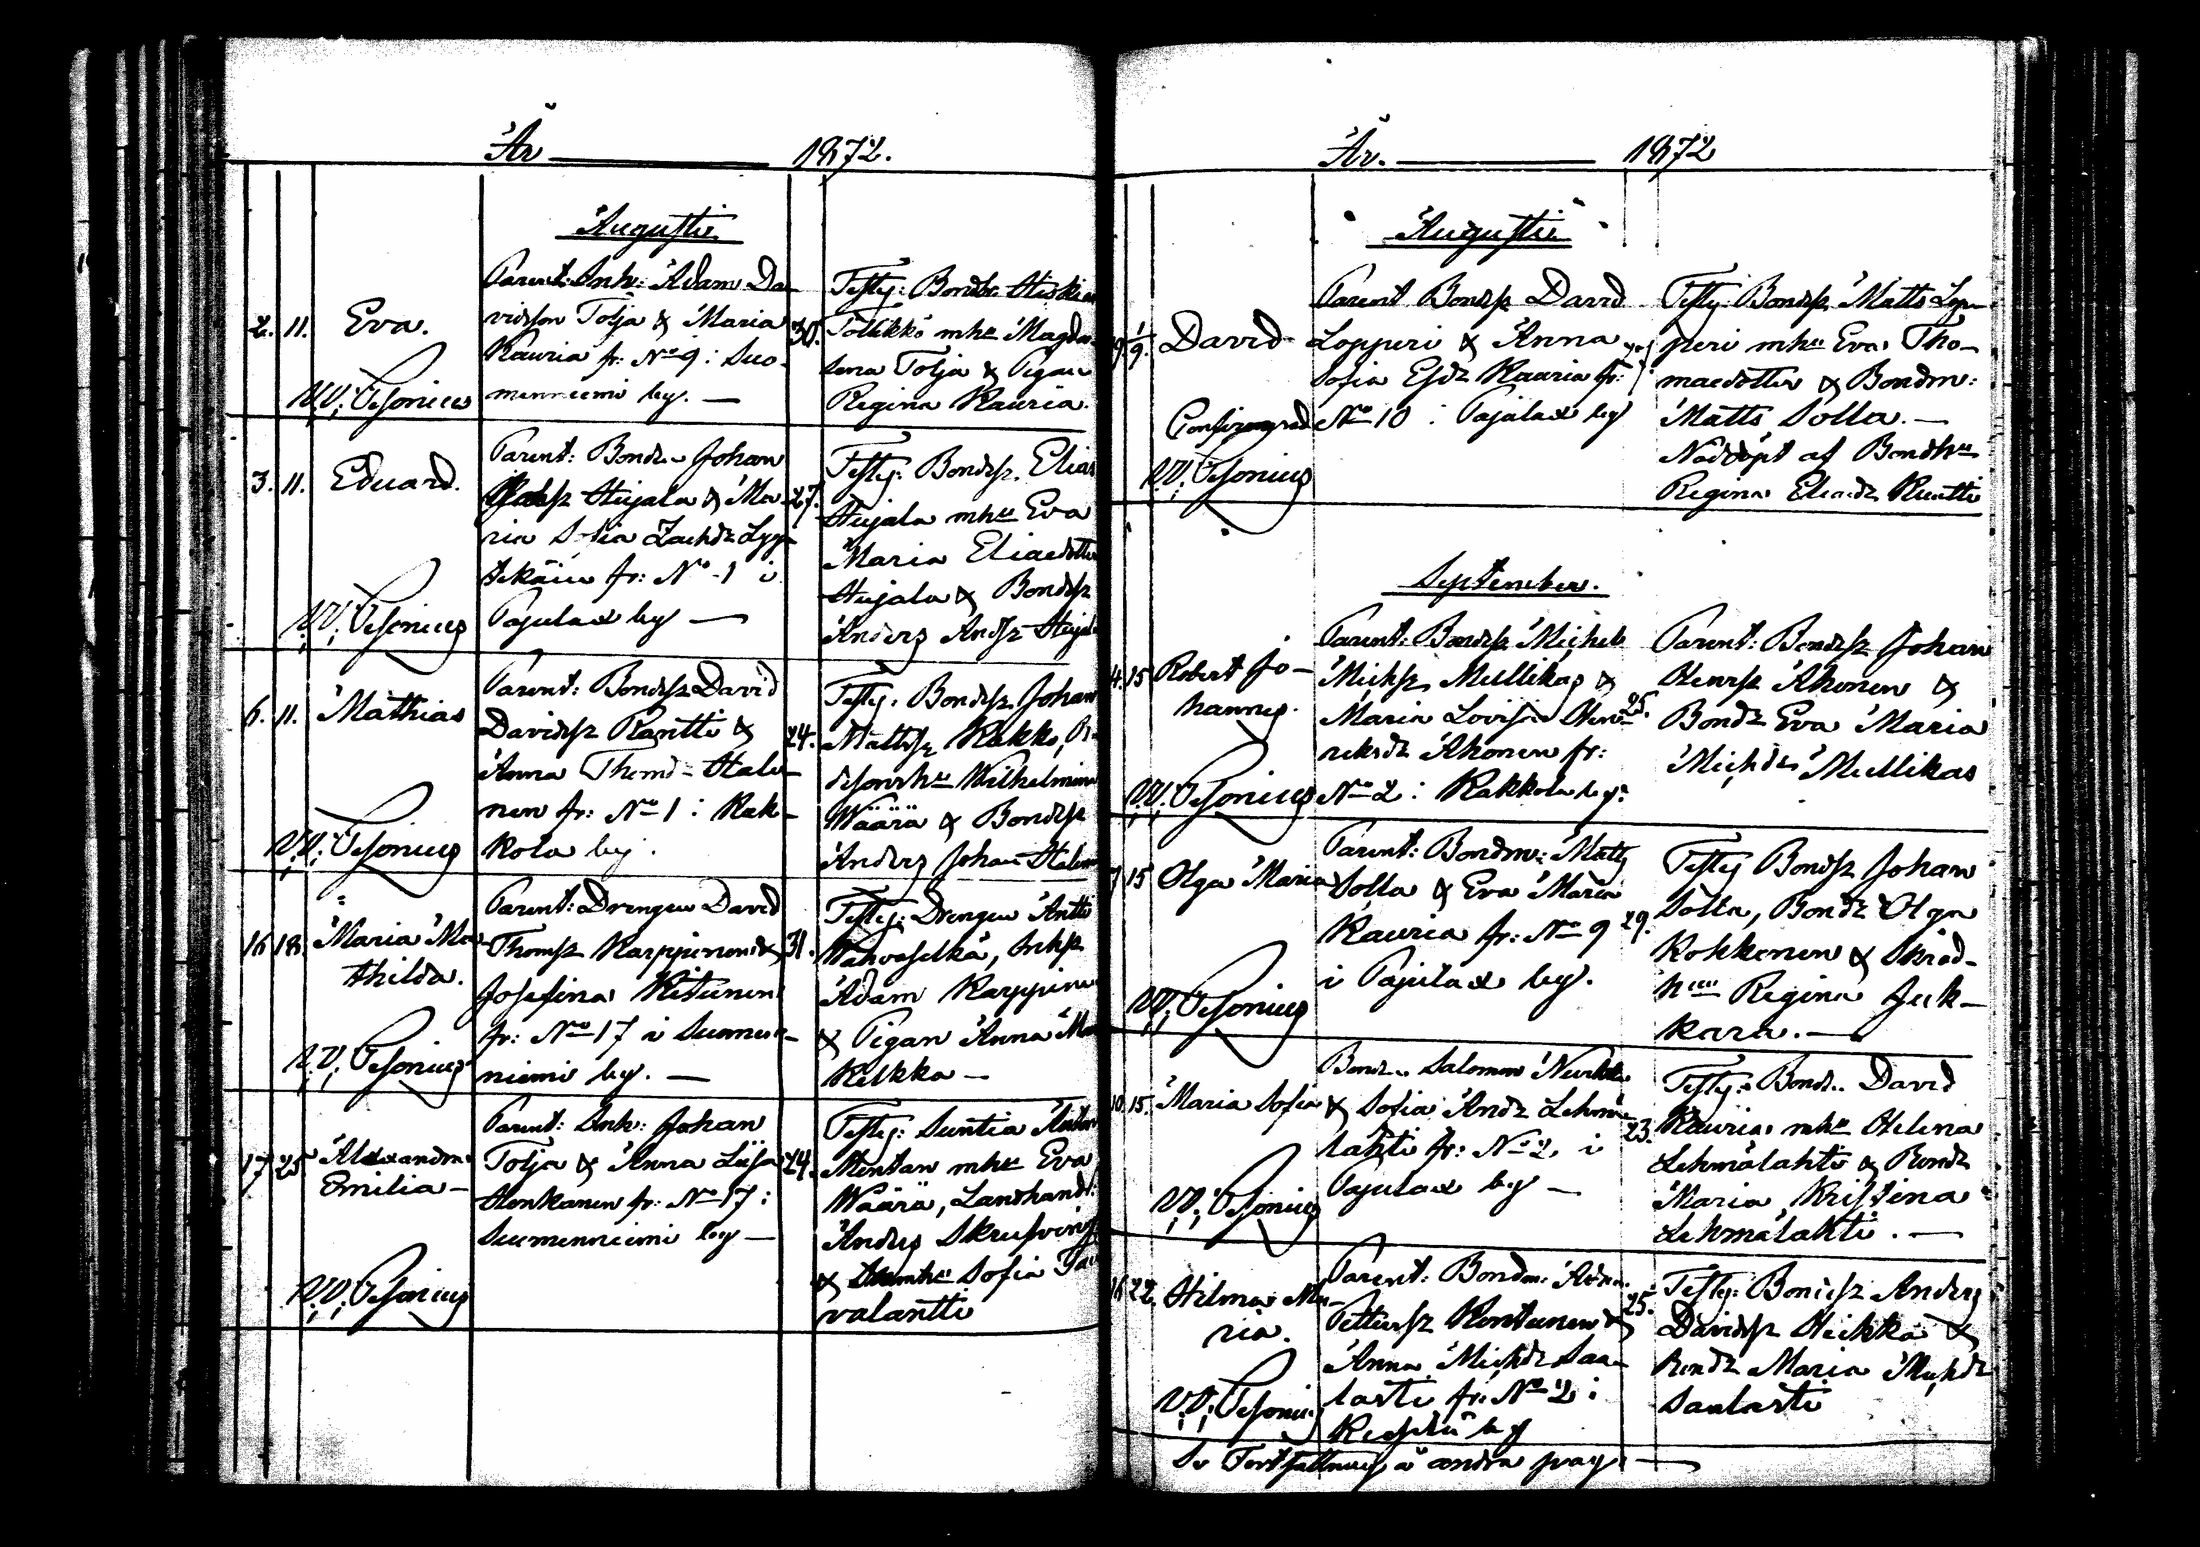 År 1872.
Augusti
2. 11. Eva.
V.V. Pesonius
Parent: Inh: Adam Da-
vidsson Tolja & Maria
Kauria fr: No 9 i Suo-
menniemi by. —
30.
Testes: Bonden
Tolukko mhu Magda-
lena Tolja & Pigan
Regina Kauria.
3. 11. Eduard.
V.V. Pesonius
Parent: Bonden Johan
Heijala & Ma-
ria Sofia Zachdr Lyy-
tikäin fr: No 1 i
Pajulax by —
27.
Testes: Bondess. Elias
Heijala mhu Eva
Maria Eliaedotter
Heijala & Bondess
Anders Andss Heijala
6. 11. Mathias
V.V. Pesonius
Parent: Bondess David
Davidss Rantti &
Anna Thomd- Hale-
nen fr: No 1 i Kak-
kola by.
24.
Testes: Bondess Johan
Mattss Kakko,
Wilhelmina
Wäärä & Bondess
Anders Johan
16 18. Maria Ma-
thilda.
V.V. Pesonius
Parent: Drengen David
Thomss Karppinen &
Josefina Kitunen
fr: No 17 i Suomen-
niemi by. —
31.
Testes: Drengen Antti
Wahvaselkä, Inhss
Adam Karppinen
& Pigan Anna Ma
Kelkka —
17 25 Alexandra
Emilia —
V.V. Pesonius
Parent: Inh: Johan
Tolja & Anna Lisa
Honkanen fr: No 17 i
Suomenniemi by —
24.
Testes: Suntia
Montan mhu Eva
Wäärä, Landhandl:
Anders
& Sofia Pa
valantti
År. 1872
Augusti
9. David
Confirmerad
V.V. Pesonius
Parent Bondess David
Lopperi & Anna
Sofia Esdr Kauria fr:
No 10 i Pajulax by
Testes: Bondess Matts Lop-
peri mhu Eva Tho-
maedotter & Bondm:
Matts Solla. —
Nöddöpt af Bondhu
Regina Eliaedr Rantti
September.
4. 15 Robert Jo-
hannes.
V.V. Pesonius
Parent: Bondess Michel
Michss Mullikas &
Maria Lovisa Hen-
riksdr Ahonen fr:
No 2 i Kakkola by.
25.
Parent: Bondess Johan
Henrss Ahonen &
Bondr Eva Maria
Michdr Mullikas
7 15 Olga Maria
V.V. Pesonius
Parent: Bondm: Matts
Solla & Eva Maria
Kauria fr: No 9
i Pajulax by.
29.
Testes Bondss Johan
Solla, Bondr Olga
Kokkonen & Skräd-
hu Regina Juk-
kara. —
10. 15. Maria Sofia
V.V. Pesonius
Bonden Salomon
& Sofia Andr Lehmä-
lahti fr: No 2 i
Pajulax by —
23.
Testes: Bonden David
Kauria mhu Helena
Lehmälahti & Bondr
Maria Kristina
Lehmälahti. —
16 22. Hilma Ma-
ria.
V.V. Pesonius
Parent: Bondm: Adam
Petterss Kontunen &
Anna Michdr Saa-
lasti fr: No 2 i
by
25.
Testes: Bondess Anders
Davidss Heikka &
Bondr Maria Michdr
Saalasti
Se Fortsättning å andra pag. —